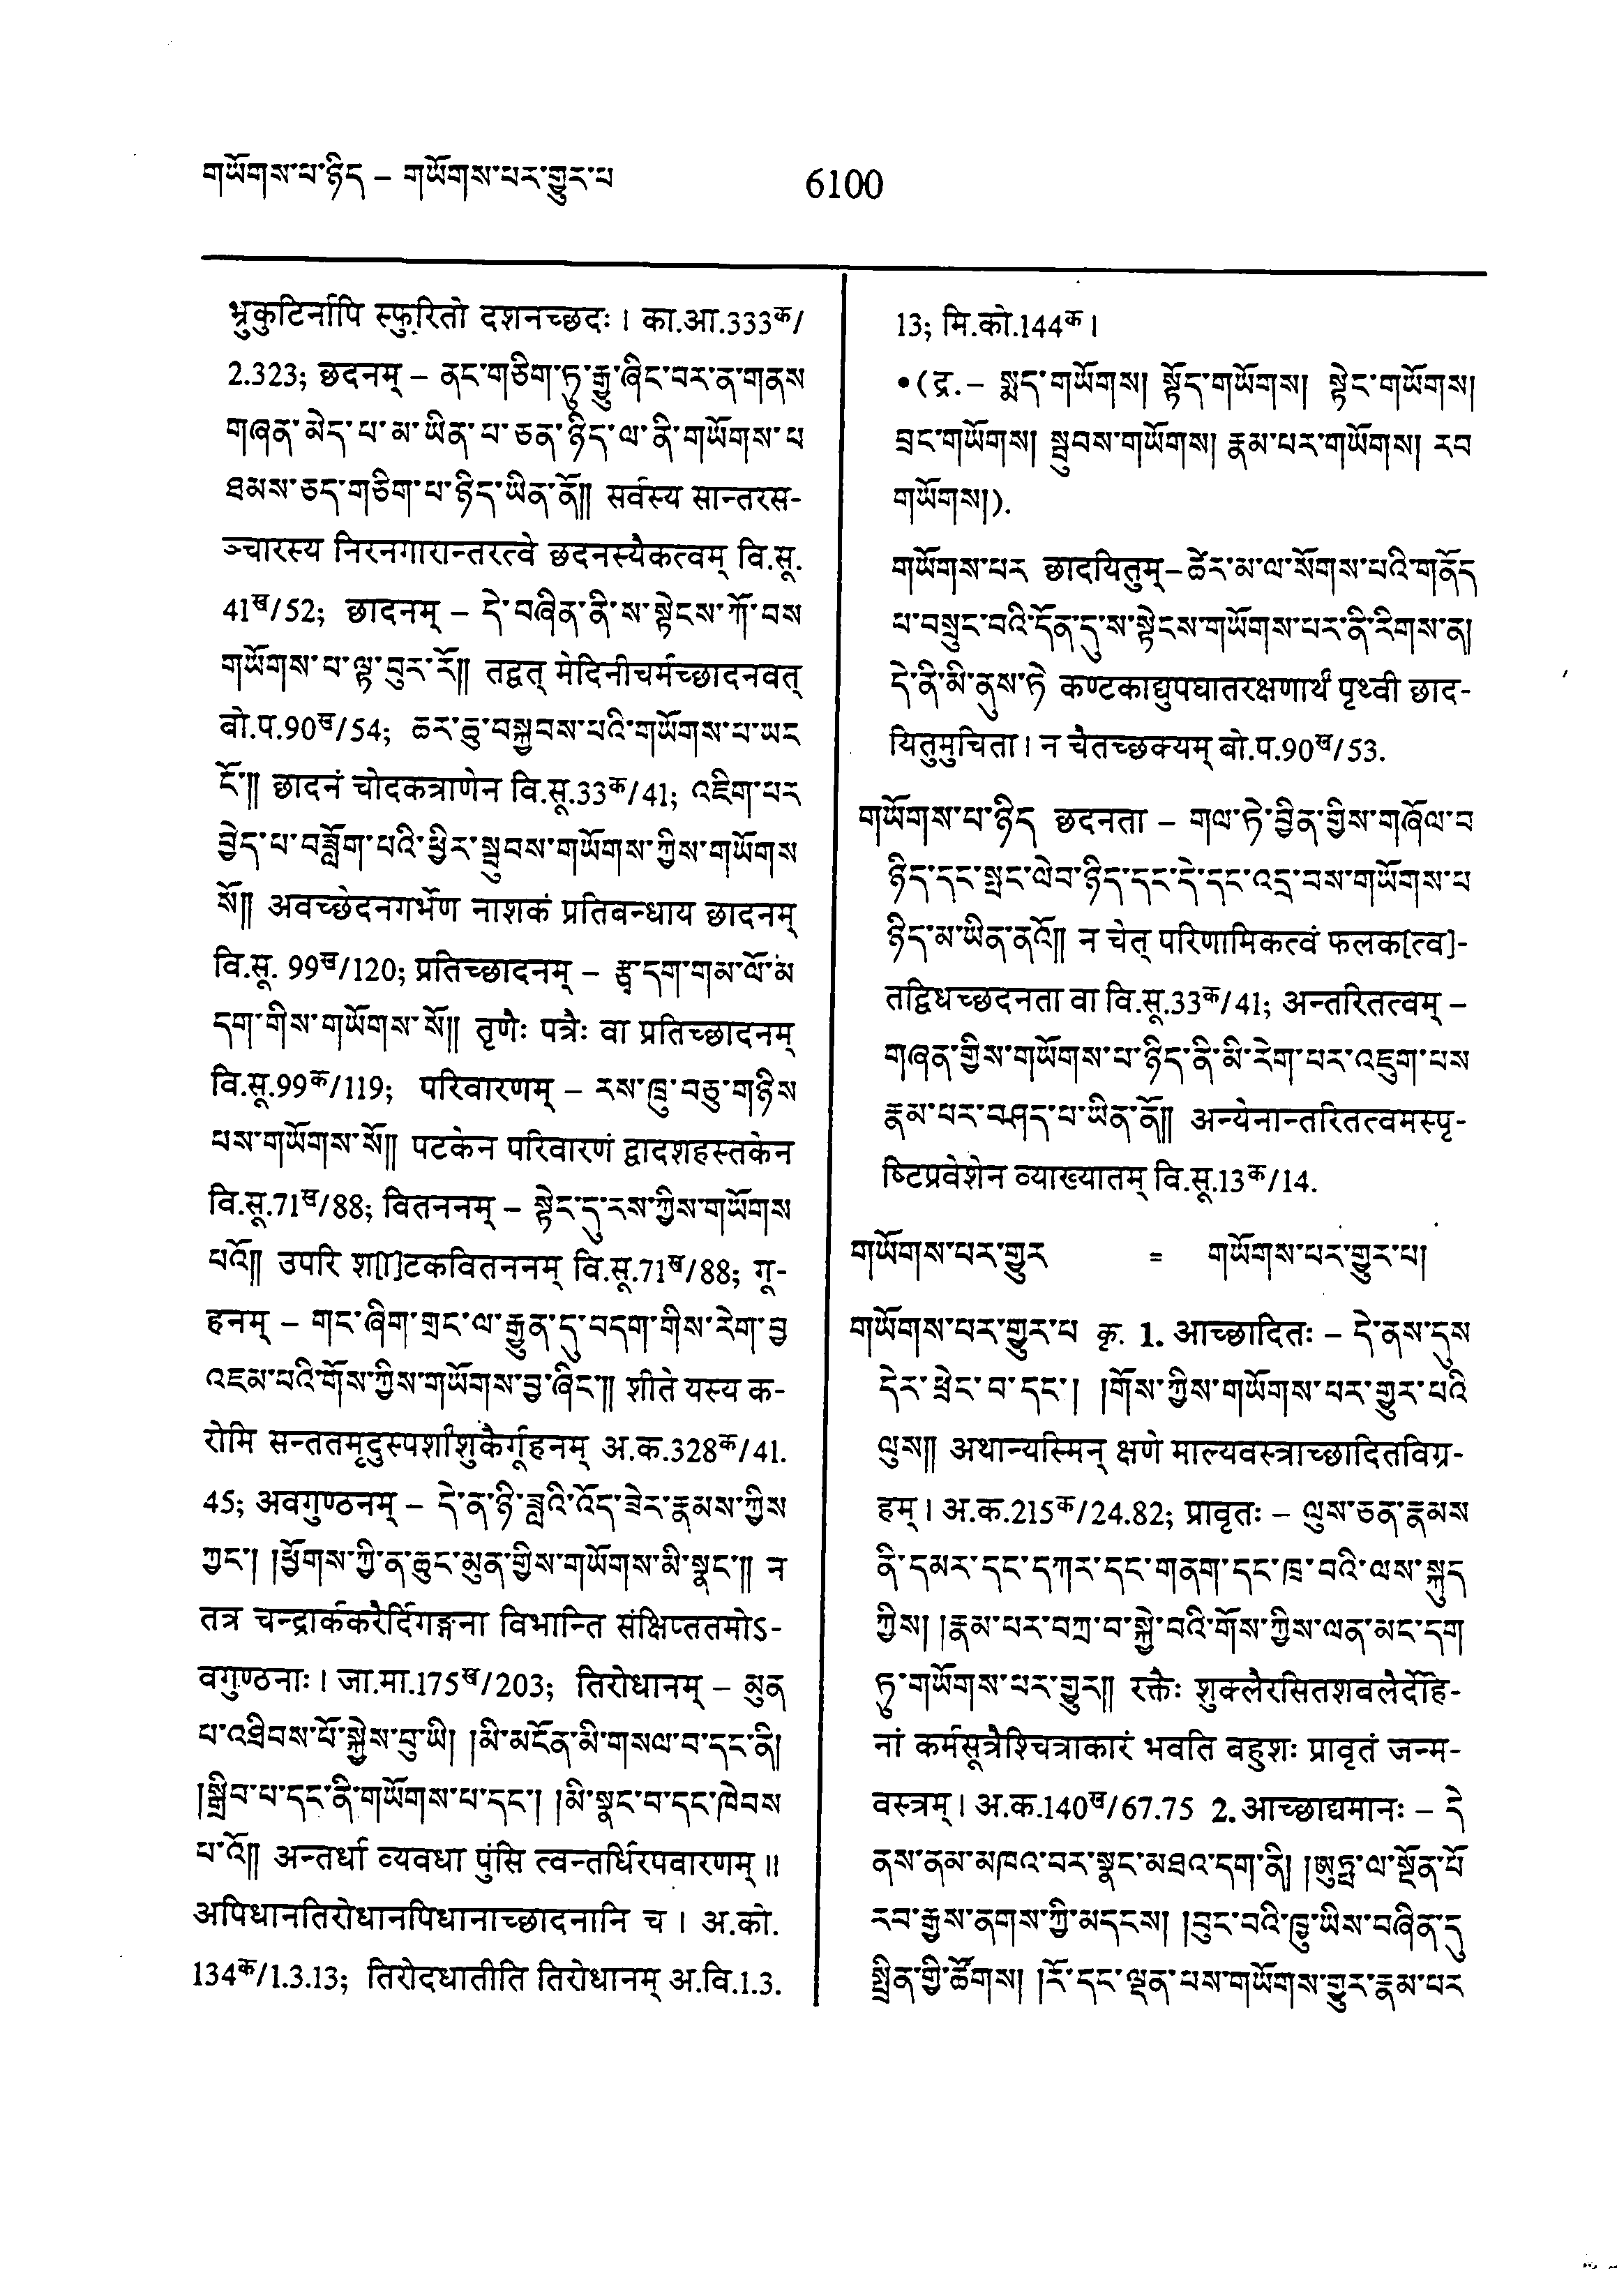 གཡོགས་པ་ཉིད – གཡོགས་པར་གྱུར་པ
6100
भ्रुकुटिर्नापि स्फुरितो दशनच्छदः । का.आ.333क/
2.323; छदनम् – ནང་གཅིག་ཏུ་རྒྱུ་ཞིང་བར་ན་གནས
གཞན་མེད་པ་མ་ཡིན་པ་ཅན་ཉིད་ལ་ནི་གཡོགས་པ
ཐམས་ཅད་གཅིག་པ་ཉིད་ཡིན་ནོ༎ सर्वस्य सान्तरस-
ञ्चारस्य निरनगारान्तरत्वे छदनस्यैकत्वम् वि.सू.
41ख/52; छादनम् – དེ་བཞིན་ནི་ས་སྟེངས་ཀོ་བས
གཡོགས་པ་ལྟ་བུར་རོ༎ तद्वत् मेदिनीचर्मच्छादनवत्
बो.प.90ख/54; ཆར་ཆུ་བསྐྱབས་པའི་གཡོགས་པ་ཡང
ངོ་༎ छादनं चोदकत्राणेन वि.सू.33क/41; འཇིག་པར
བྱེད་པ་བཟློག་པའི་ཕྱིར་སྦུབས་གཡོགས་ཀྱིས་གཡོགས
སོ༎ अवच्छेदनगर्भेण नाशकं प्रतिबन्धाय छादनम्
वि.सू. 99ख/120; प्रतिच्छादनम् – རྩྭ་དག་གམ་ལོ་མ
དག་གིས་གཡོགས་སོ༎ तृणैः पत्रैः वा प्रतिच्छादनम्
वि.सू.99क/119; परिवारणम् – རས་ཁྲུ་བཅུ་གཉིས
པས་གཡོགས་སོ༎ पटकेन परिवारणं द्वादशहस्तकेन
वि.सू.71ख/88; वितननम् – སྟེང་དུ་རས་ཀྱིས་གཡོགས
པའོ༎ उपरि श[ा]टकवितननम् वि.सू.71ख/88; गू-
हनम् – གང་ཞིག་གྲང་ལ་རྒྱུན་དུ་བདག་གིས་རེག་བྱ
འཇམ་པའི་གོས་ཀྱིས་གཡོགས་བྱ་ཞིང་༎ शीते यस्य क-
रोमि सन्ततमृदुस्पर्शांशुकैर्गूहनम् अ.क.328क/41.
45; अवगुण्ठनम् – དེ་ན་ཉི་ཟླའི་འོད་ཟེར་རྣམས་ཀྱིས
ཀྱང་། །ཕྱོགས་ཀྱི་ན་ཆུང་མུན་གྱིས་གཡོགས་མི་སྣང་༎ न
तत्र चन्द्रार्ककरैर्दिगङ्गना विभान्ति संक्षिप्ततमोऽ-
वगुण्ठनाः । जा.मा.175ख/203; तिरोधानम् – མུན
པ་འཐིབས་པོ་སྐྱེས་བུ་ཡི། །མི་མངོན་མི་གསལ་བ་དང་ནི།
།སྒྲིབ་པ་དང་ནི་གཡོགས་པ་དང་། །མི་སྣང་བ་དང་ཁེབས
པ་འོ༎ अन्तर्धा व्यवधा पुंसि त्वन्तर्धिरपवारणम् ॥
अपिधानतिरोधानपिधानाच्छादनानि च । अ.को.
134क/1.3.13; तिरोदधातीति तिरोधानम् अ.वि.1.3.
13; मि.को.144क ।
•(द्र.– སྨད་གཡོགས། སྟོད་གཡོགས། སྟེང་གཡོགས།
བྲང་གཡོགས། སྦུབས་གཡོགས། རྣམ་པར་གཡོགས། རབ
གཡོགས།).
གཡོགས་པར छादयितुम्–ཚེར་མ་ལ་སོགས་པའི་གནོད
པ་བསྲུང་བའི་དོན་དུ་ས་སྟེངས་གཡོགས་པར་ནི་རིགས་ན།
དེ་ནི་མི་ནུས་ཏེ कण्टकाद्युपघातरक्षणार्थं पृथ्वी छाद-
यितुमुचिता । न चैतच्छक्यम् बो.प.90ख/53.
གཡོགས་པ་ཉིད छदनता – གལ་ཏེ་བྱིན་གྱིས་གཞོལ་བ
ཉིད་དང་སྤང་ལེབ་ཉིད་དང་དེ་དང་འདྲ་བས་གཡོགས་པ
ཉིད་མ་ཡིན་ནའོ༎ न चेत् परिणामिकत्वं फलक[त्व]-
तद्विधच्छदनता वा वि.सू.33क/41; अन्तरितत्वम् –
གཞན་གྱིས་གཡོགས་པ་ཉིད་ནི་མི་རེག་པར་འཇུག་པས
རྣམ་པར་བཤད་པ་ཡིན་ནོ༎ अन्येनान्तरितत्वमस्पृ-
ष्टिप्रवेशेन व्याख्यातम् वि.सू.13क/14.
གཡོགས་པར་གྱུར = གཡོགས་པར་གྱུར་པ།
གཡོགས་པར་གྱུར་པ कृ. 1. आच्छादितः – དེ་ནས་དུས
དེར་ཕྲེང་བ་དང་། །གོས་ཀྱིས་གཡོགས་པར་གྱུར་པའི
ལུས༎ अथान्यस्मिन् क्षणे माल्यवस्त्राच्छादितविग्र-
हम् । अ.क.215क/24.82; प्रावृतः – ལུས་ཅན་རྣམས
ནི་དམར་དང་དཀར་དང་གནག་དང་ཁྲ་བའི་ལས་སྐུད
ཀྱིས། །རྣམ་པར་བཀྲ་བ་སྐྱེ་བའི་གོས་ཀྱིས་ལན་མང་དག
ཏུ་གཡོགས་པར་གྱུར༎ रक्तैः शुक्लैरसितशवलैर्देहि-
नां कर्मसूत्रैश्चित्राकारं भवति बहुशः प्रावृतं जन्म-
वस्त्रम् । अ.क.140ख/67.75 2. आच्छाद्यमानः – དེ
ནས་ནམ་མཁའ་བར་སྣང་མཐའ་དག་ནི། །ཨུཏྤལ་སྔོན་པོ
རབ་རྒྱས་ནགས་ཀྱི་མདངས། །བུང་བའི་ཁྱུ་ཡིས་བཞིན་དུ
སྤྲིན་གྱི་ཚོགས། །རོ་དང་ལྡན་པས་གཡོགས་གྱུར་རྣམ་པར